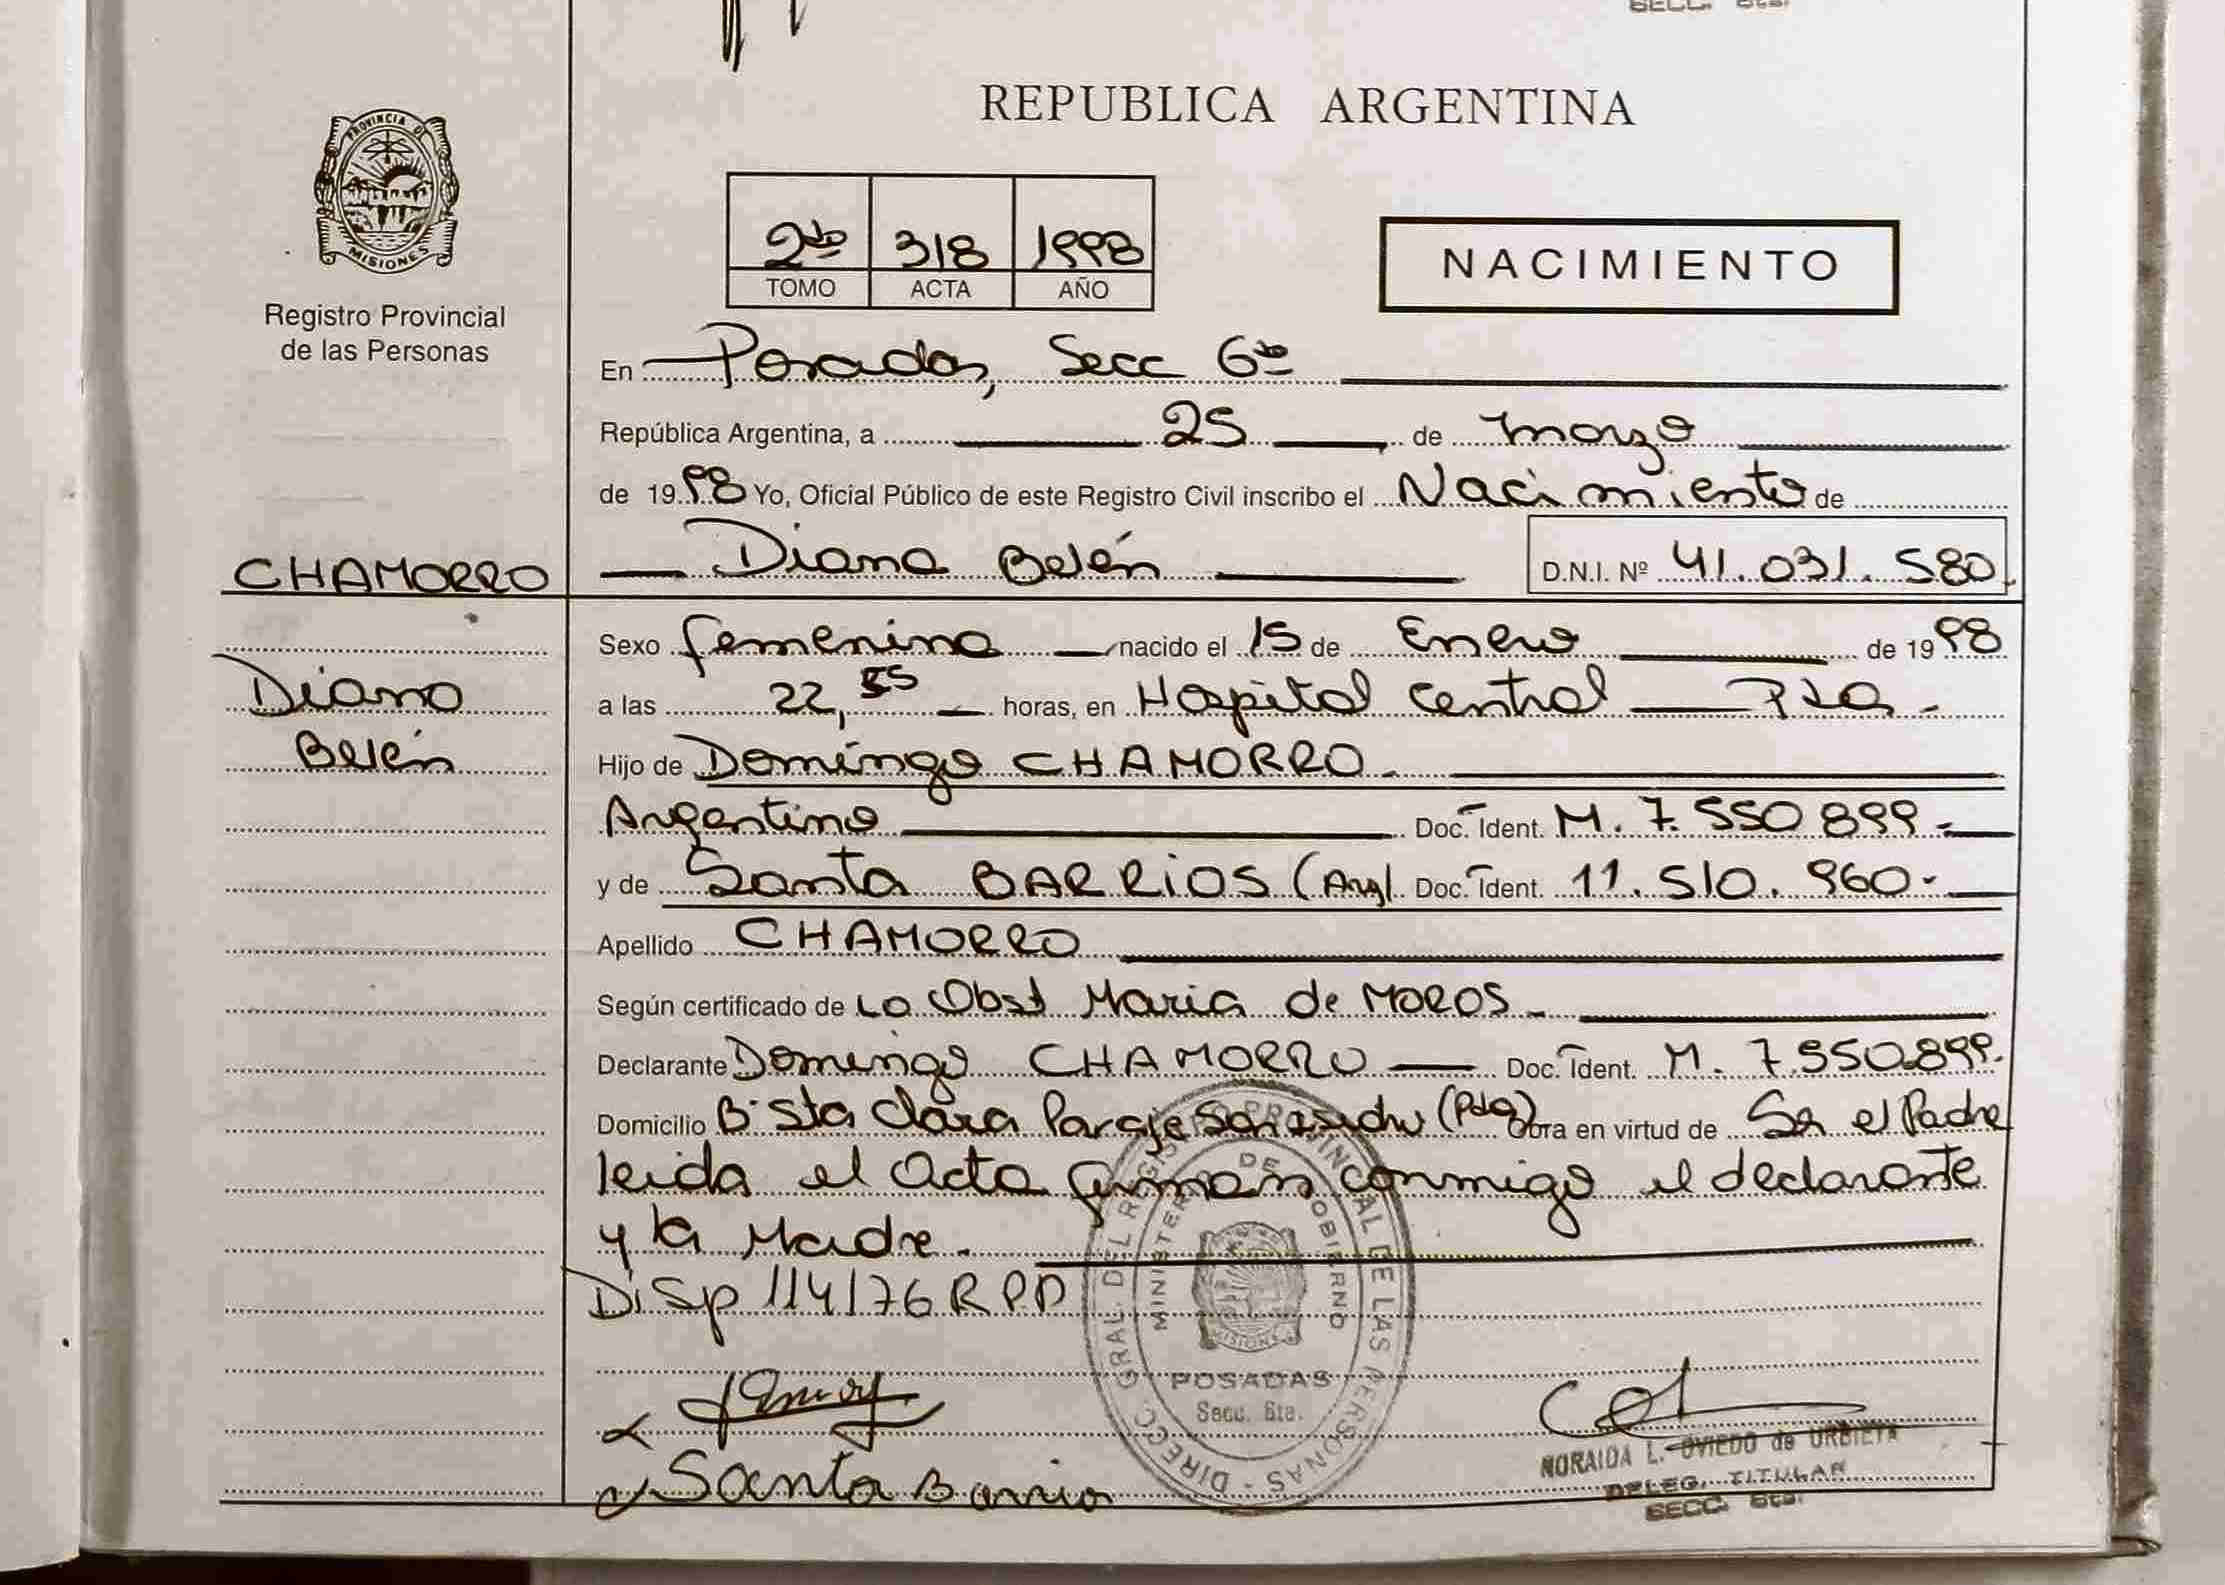 SECC. 6ta.
REPUBLICA ARGENTINA
PROVINCIA DE MISIONES
Registro Provincial
de las Personas
2do 318 1998
TOMO ACTA AÑO
NACIMIENTO
En Posadas, Secc 6ta
República Argentina, a 25 de marzo
de 1998 Yo, Oficial Público de este Registro Civil inscribo el Nacimiento de
CHAMORRO Diana Belén D.N.I. Nº 41.031.580
Sexo femenino nacido el 15 de Enero de 1998
Diana
a las 22,55 horas, en Hospital Central
Belén
Hijo de Domingo CHAMORRO
Argentino Doc. Ident. M. 7.550.899
y de Santa BARRIOS (Arg) Doc. Ident. 11.510.960
Apellido CHAMORRO
Según certificado de La Obst Maria de MOROS
Declarante Domingo CHAMORRO Doc. Ident. M. 7.550.899
Domicilio B° Sta Clara Paraje San Isidro (Pdas) Obra en virtud de Ser el Padre
leida el acta firman conmigo el declarante
y la Madre.
Disp 114/76 R.P.P
DIRECC. GRAL. DEL REGISTRO PROVINCIAL DE LAS PERSONAS
MINISTERIO DE GOBIERNO
MISIONES
POSADAS
Secc. 6ta.
Santa Barrio
NORAIDA L. OVIEDO de URBIETA
DELEG. TITULAR
SECC. 6ta.